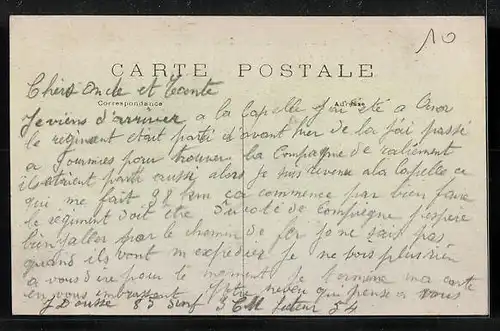 10
CARTE POSTALE
Correspondance Adresse
Chers Oncle et Tante
Je viens d'arriver a la Capelle j'ai été a Anor
le régiment était parti d'avant hier de la j'ai passé
a Fourmies pour trouver la Compagnie de raliement
ils étaient parti aussi alors je suis revenu a la Capelle ce
qui me fait 98 km ça commence par bien faire
le régiment doit etre du coté de Compiegne j'espere
bien aller par le chemin de fer je ne sais pas
quand ils vont m expédier je ne vois plus rien
a vous dire pour le moment je termine ma carte
en vous embrassant Votre neveu qui pense a vous
J 85 Inf S4